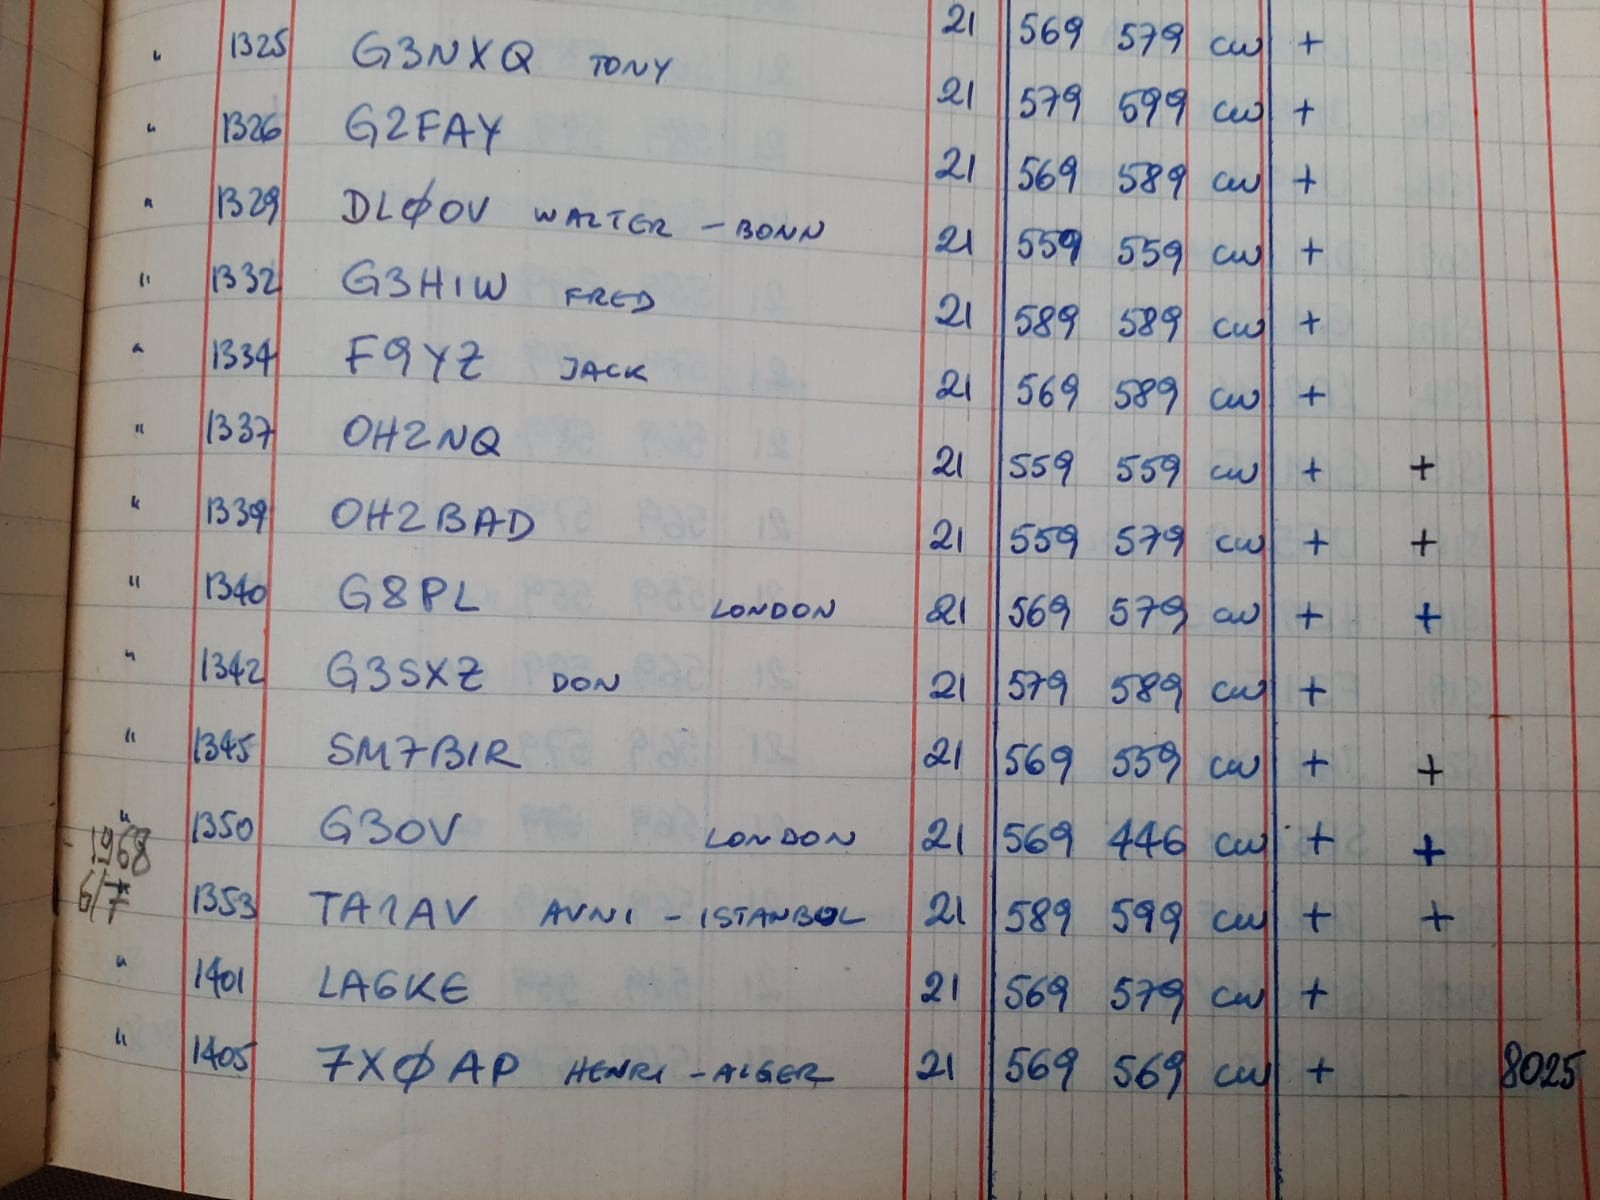 " 1325 G3NXQ TONY 21 569 579 CW +
" 1326 G2FAY 21 579 599 CW +
" 1329 DLØOV WALTER - BONN 21 569 589 CW +
" 1332 G3HIW FRED 21 559 559 CW +
" 1334 F9YZ JACK 21 589 589 CW +
" 1337 OH2NQ 21 569 589 CW +
" 1339 OH2BAD 21 559 559 CW + +
" 1340 G8PL LONDON 21 559 579 CW + +
" 1342 G3SXZ DON 21 569 579 CW + +
" 1345 SM7BIR 21 579 589 CW +
" 1350 G3OV LONDON 21 569 559 CW + +
1968
6/7 1353 TA1AV AVNI - ISTANBUL 21 569 446 CW + +
" 1401 LA6KE 21 589 599 CW + +
" 1405 7XØAP HENRI - ALGER 21 569 579 CW +
21 569 569 CW + 8025